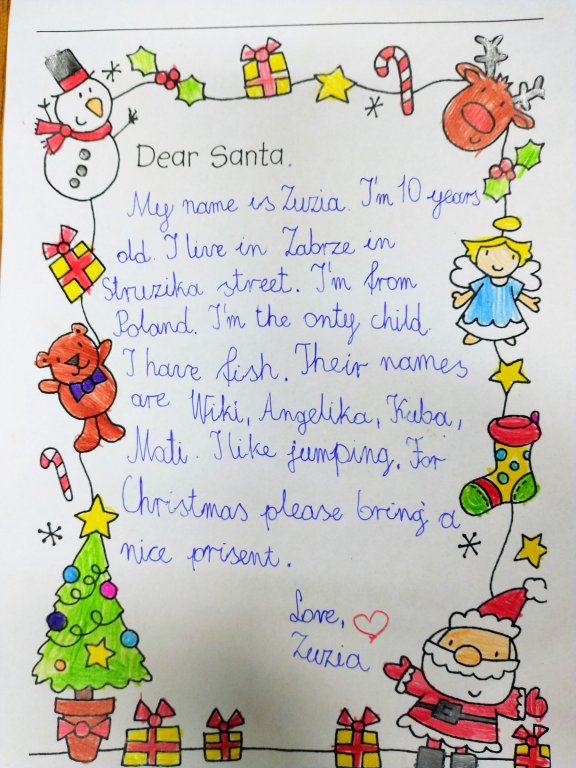 Dear Santa.
My name is Zuzia. I'm 10 years
old. I live in Zabrze in
Struzika street. I'm from
Poland. I'm the onty child.
I have fish. Their names
are Wiki, Angelika, Kuba,
Mati. I like jumping. For
Christmas please bring a
nice prisent.
Love,
Zuzia